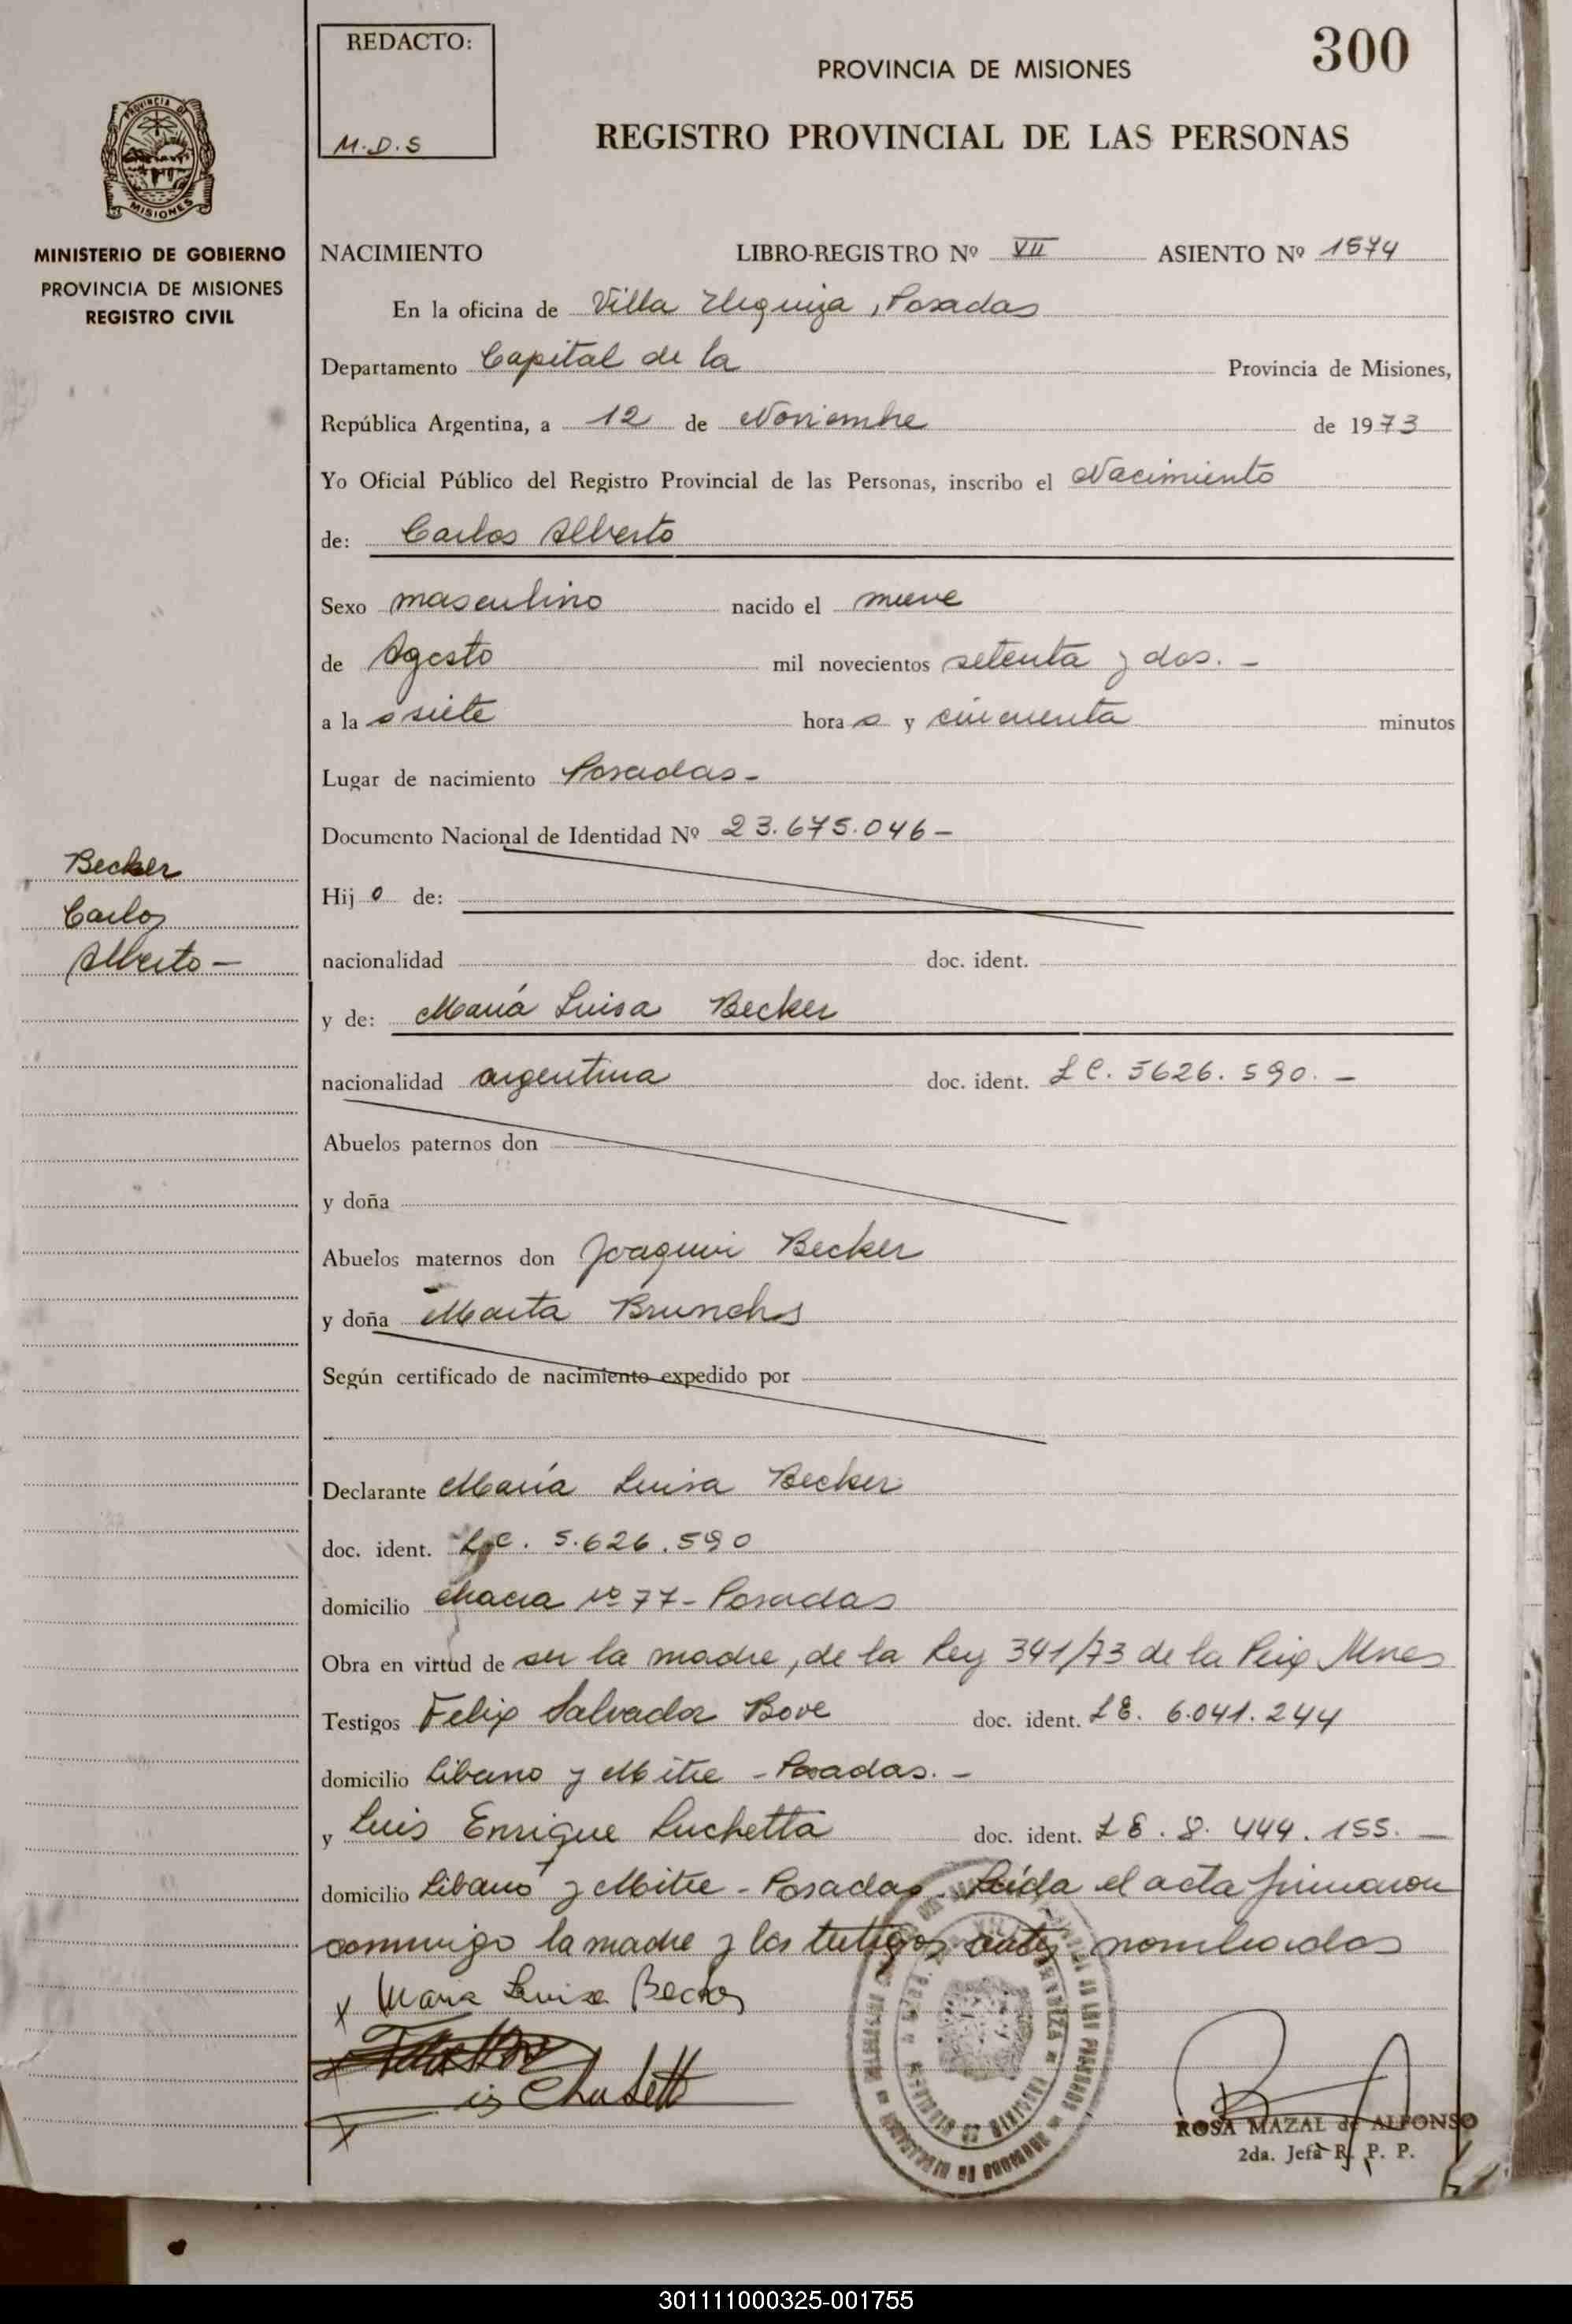 REDACTO:
M.D.S
300
PROVINCIA DE MISIONES
REGISTRO PROVINCIAL DE LAS PERSONAS
PROVINCIA DE
MISIONES
MINISTERIO DE GOBIERNO
PROVINCIA DE MISIONES
REGISTRO CIVIL
NACIMIENTO LIBRO-REGISTRO Nº VII ASIENTO Nº 1574
En la oficina de Villa Urquiza, Posadas
Departamento Capital de la Provincia de Misiones,
República Argentina, a 12 de Noviembre de 1973
Yo Oficial Público del Registro Provincial de las Personas, inscribo el Nacimiento
de: Carlos Alberto
Sexo masculino nacido el nueve
de Agosto mil novecientos setenta y dos. -
a la s siete hora s y cincuenta minutos
Lugar de nacimiento Posadas -
Documento Nacional de Identidad Nº 23.675.046 -
Becker
Carlos
Alberto -
Hij o de:
nacionalidad doc. ident.
y de: María Luisa Becker
nacionalidad argentina doc. ident. L C. 5626.590. -
Abuelos paternos don
y doña
Abuelos maternos don Joaquin Becker
y doña Marta Brunchs
Según certificado de nacimiento expedido por
Declarante María Luisa Becker
doc. ident. L.C. 5.626.590
domicilio Chacra Nº 77 - Posadas
Obra en virtud de ser la madre, de la Ley 341/73 de la Mnes
Testigos Felix Salvador Bove doc. ident. L E. 6.041.244
domicilio Libano y Mitre - Posadas. -
y Luis Enrique Luchetta doc. ident. L E. 8.444.155. -
domicilio Libano y Mitre - Posadas. Leída el acta firmaron
conmigo la madre y los testigos antes nombrados
x Maria Luisa Becker
ROSA MAZAL de ALFONSO
2da. Jefa R. P. P.
301111000325-001755